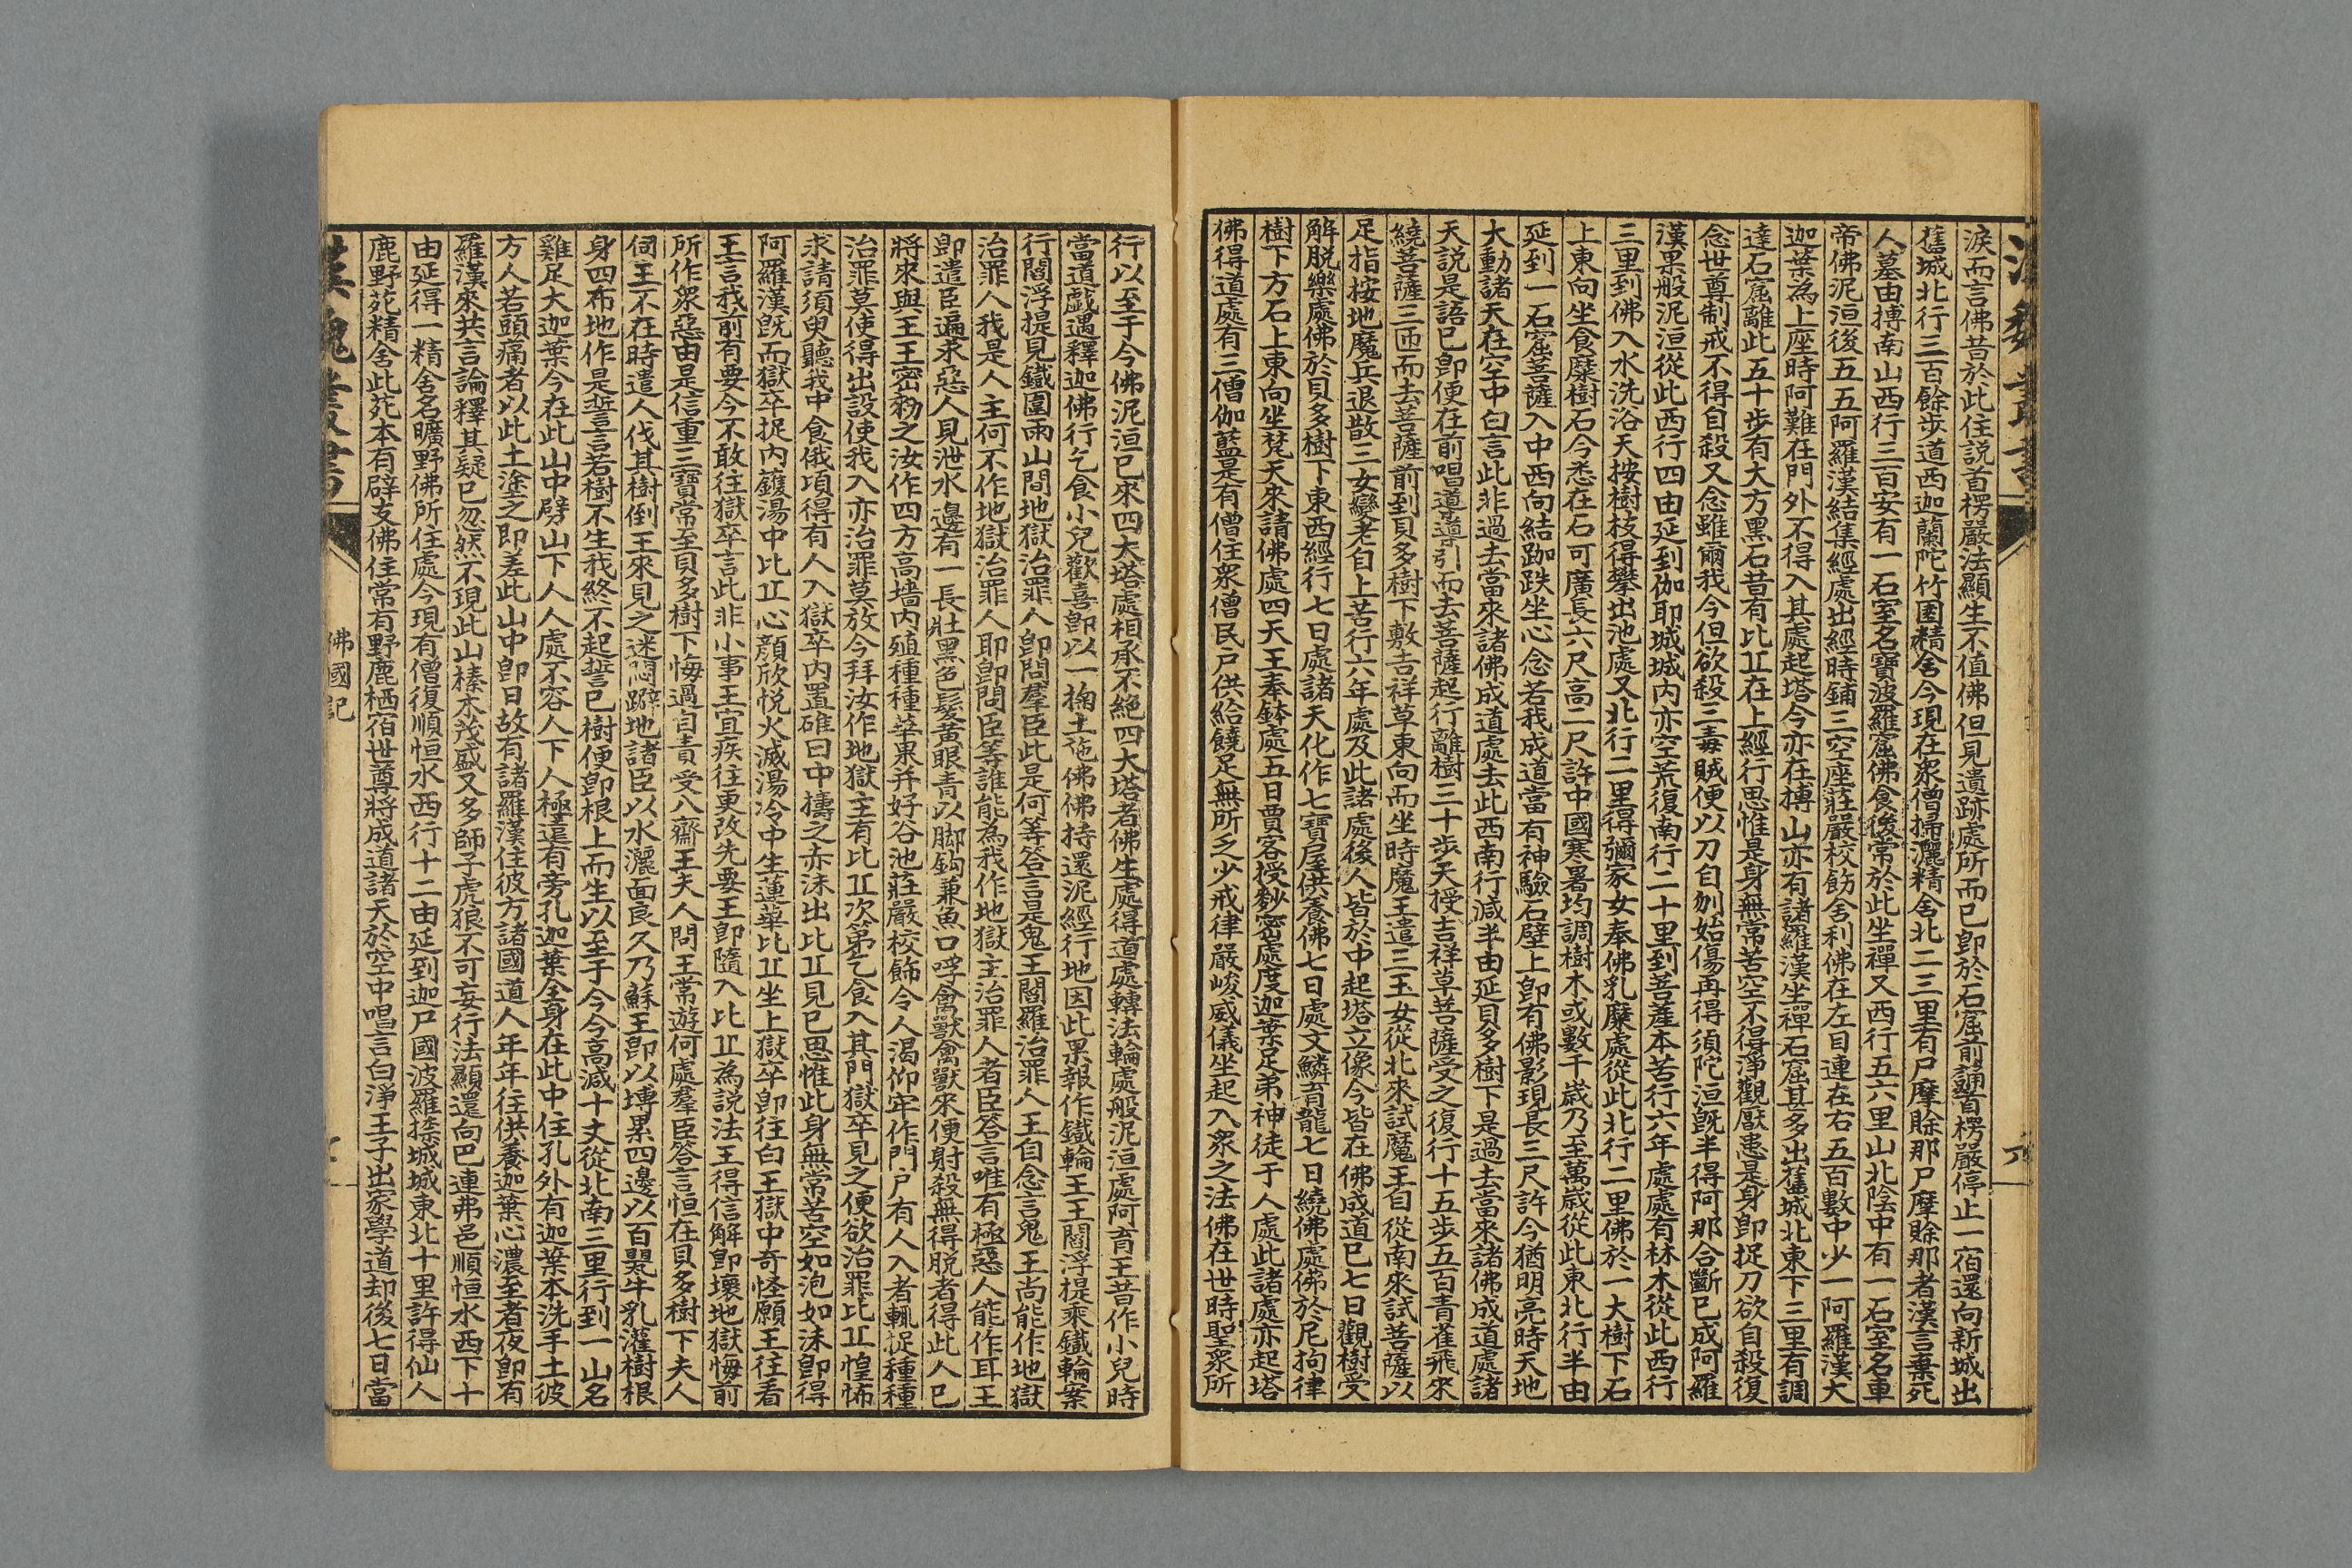 淚而言佛昔於此住説首楞嚴法顯生不值佛但見遺跡處所而已卽於石窟前誦首楞嚴停止一宿還向新城出
舊城北行三百餘步道西迦蘭陀竹園精舍今現在衆僧掃灑精舍北二三里有尸摩賖那尸摩賖那者漢言棄死
人墓由搏南山西行三百安有一石室名賓波羅窟佛食後常於此坐禪又西行五六里山北陰中有一石室名車
帝佛泥洹後五五阿羅漢結集經處出經時鋪三空座莊嚴校飭舍利佛在左目連在右五百數中少一阿羅漢大
迦葉為上座時阿難在門外不得入其處起塔今亦在搏山亦有諸羅漢坐禪石窟甚多出舊城北東下三里有調
達石窟離此五十步有大方黑石昔有比丘在上經行思惟是身無常苦空不得淨觀厭患是身卽捉刀欲自殺復
念世尊制戒不得自殺又念雖爾我今但欲殺三毒賊便以刀自刎始傷再得須陀洹旣半得阿那合斷已成阿羅
漢果般泥洹從此西行四由延到伽耶城城内亦空荒復南行二十里到菩薩本苦行六年處處有林木從此西行
三里到佛入水洗浴天按樹枝得攀出池處又北行二里得彌家女奉佛乳糜處從此北行二里佛於一大樹下石
上東向坐食糜樹石今悉在石可廣長六尺高二尺許中國寒暑均調樹木或數千歲乃至萬歲從此東北行半由
延到一石窟菩薩入中西向結跏趺坐心念若我成道當有神驗石壁上卽有佛影現長三尺許今猶明亮時天地
大動諸天在空中白言此非過去當來諸佛成道處去此西南行減半由延貝多樹下是過去當來諸佛成道處諸
天説是語已卽便在前唱道導引而去菩薩起行離樹三十步天授吉祥草菩薩受之復行十五步五百青雀飛來
繞菩薩三匝而去菩薩前到貝多樹下敷吉祥草東向而坐時魔王遣三玉女從北來試魔王自從南來試菩薩以
足指按地魔兵退散三女變老自上苦行六年處及此諸處後人皆於中起塔立像今皆在佛成道已七日觀樹受
解脱樂處佛於貝多樹下東西經行七日處諸天化作七寶屋供養佛七日處文鱗盲龍七日繞佛處佛於尼拘律
樹下方石上東向坐梵天來請佛處四天王奉鉢處五日賈客授麨蜜處度迦葉足弟神徒于人處此諸處亦起塔
佛得道處有三僧伽藍是有僧住衆僧民戸供給饒足無所乏少戒律嚴峻威儀坐起入衆之法佛在世時聖衆所
行以至于今佛泥洹已來四大塔處相承不絶四大塔者佛生處得道處轉法輪處般泥洹處阿育王昔作小兒時
當道戲遇釋迦佛行乞食小兒歡喜卽以一掬土施佛佛持還泥經行地因此果報作鐵輪王王閻浮提乘鐵輪案
行閻浮提見鐵圍兩山間地獄治罪人卽問羣臣此是何等答言是鬼王閻羅治罪人王自念言鬼王尚能作地獄
治罪人我是人主何不作地獄治罪人耶卽問臣等誰能為我作地獄主治罪人者臣答言唯有極惡人能作耳王
卽遣臣遍求惡人見泄水邊有一長壯黑色髮黄眼青以脚鉤兼魚口呼禽獸禽獸來便射殺無得脱者得此人已
將來與王王密勑之汝作四方高墻内殖種種華果并好谷池莊嚴校飾令人渴仰牢作門戸有人入者輒捉種種
治罪莫使得出設使我入亦治罪莫放今拜汝作地獄主有比丘次第乞食入其門獄卒見之便欲治罪比丘惶怖
求請須臾聽我中食俄頃得有人入獄卒内置碓臼中擣之亦沫出比丘見已思惟此身無常苦空如泡如沫卽得
阿羅漢旣而獄卒捉内鑊湯中比丘心顏欣悦火滅湯冷中生蓮華比丘坐上獄卒卽往白王獄中奇怪願王往看
王言我前有要今不敢往獄卒言此非小事王宜疾往更改先要王卽隨入比丘為説法王得信解卽壞地獄悔前
所作衆惡由是信重三寶常至貝多樹下悔過自責受八齋王夫人問王常遊何處羣臣答言恒在貝多樹下夫人
伺王不在時遣人伐其樹倒王來見之迷悶躃地諸臣以水灑面良久乃蘇王卽以塼累四邊以百甖牛乳灌樹根
身四布地作是誓言若樹不生我終不起誓已樹便卽根上而生以至于今今高減十丈從北南三里行到一山名
雞足大迦葉今在此山中劈山下人人處不容人下人極遠有旁孔迦葉全身在此中住孔外有迦葉本洗手土彼
方人若頭痛者以此土塗之卽差此山中卽日故有諸羅漢住彼方諸國道人年年往供養迦葉心濃至者夜卽有
羅漢來共言論釋其疑已忽然不現此山榛木茂盛又多師子虎狼不可妄行法顯還向巴連弗邑順恒水西下十
由延得一精舍名曠野佛所住處今現有僧復順恒水西行十二由延到迦尸國波羅捺城城東北十里許得仙人
鹿野苑精舍此苑本有辟支佛住常有野鹿栖宿世尊將成道諸天於空中唱言白淨王子出家學道却後七日當
佛國記